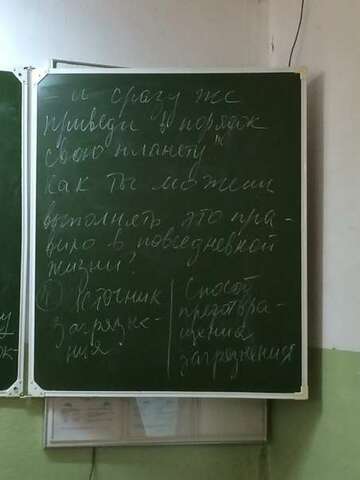 – и сразу же
приведи в порядок
свою планету"
Как ты можешь
выполнять это пра-
вило в повседневной
жизни?
④ Источник
загрязне-
ния
Способ
предотвра-
щения
загрязнения